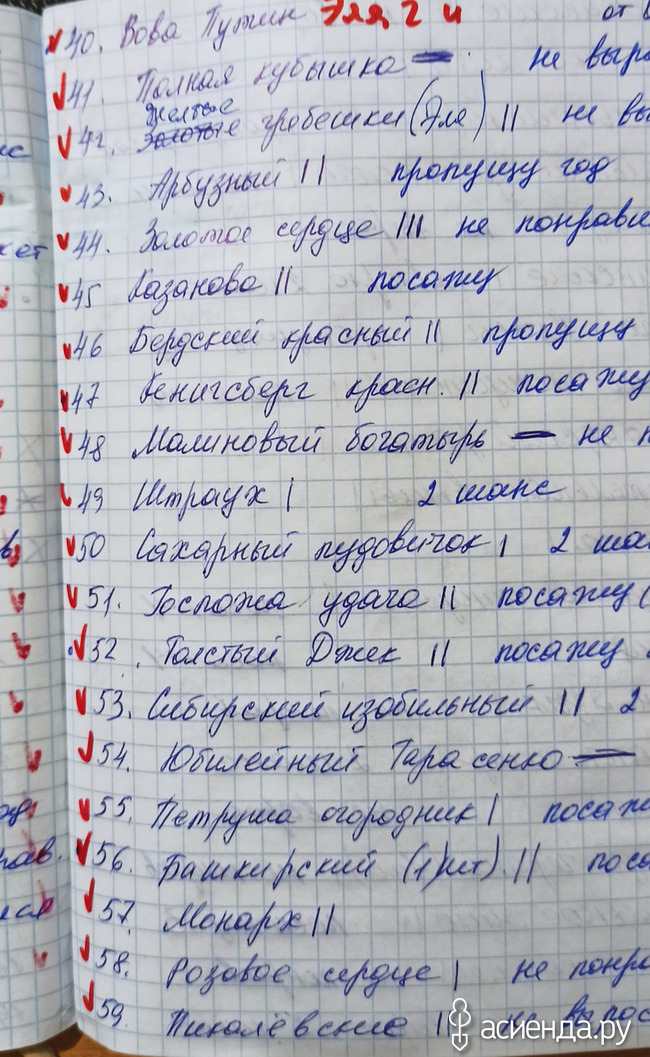 40. Вова Путин Эля 2 и от в
41. Полная кубышка — не выро
Желтые
42. Золотые гребешки (Эля) || не вы
43. Арбузный || пропущу год
44. Золотое сердце ||| не понрави
45 Казанова || посажу
46 Бердский красный || пропущу
47 Кенигсберг красн. || посажу
48 Малиновый богатырь — не п
49 Штраух | 2 шанс
50 Сахарный пудовичок | 2 шан
51. Госпожа удача || посажу (
52. Толстый Джек || посажу
53. Сибирский изобильный || 2
54. Юбилейный Тарасенко —
55. Петруша огородник | посаж
56. Башкирский (1) шт). || поса
57. Монарх ||
58. Розовое сердце | не понра
59. Пикалёвские || не вырос
асиенда.ру